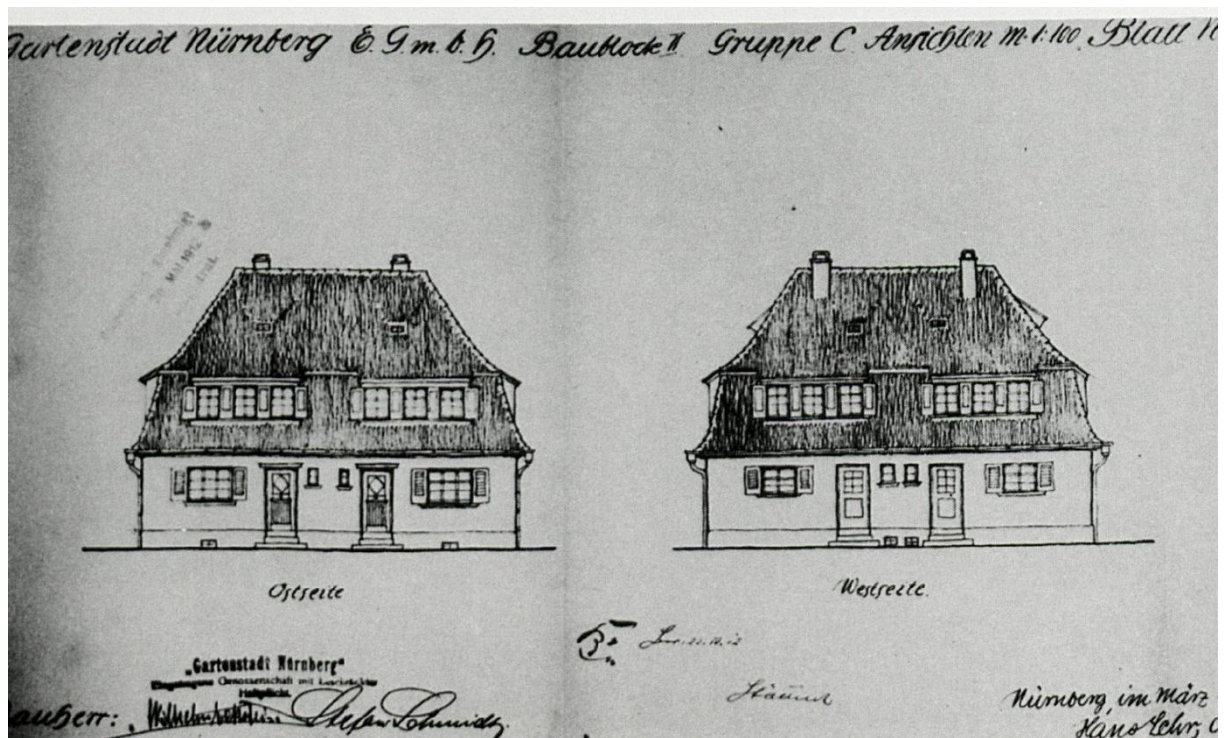 Gartenstadt Nürnberg E.G.m.b.H. Baublock II Gruppe C Ansichten M. 1:100. Blatt
Ostseite
Westseite.
„Gartenstadt Nürnberg"
Eingetragene Genossenschaft mit beschränkter
Haftpflicht.
Bauherr: Stefan Schmidt
Nürnberg im März
Hans Lehr,